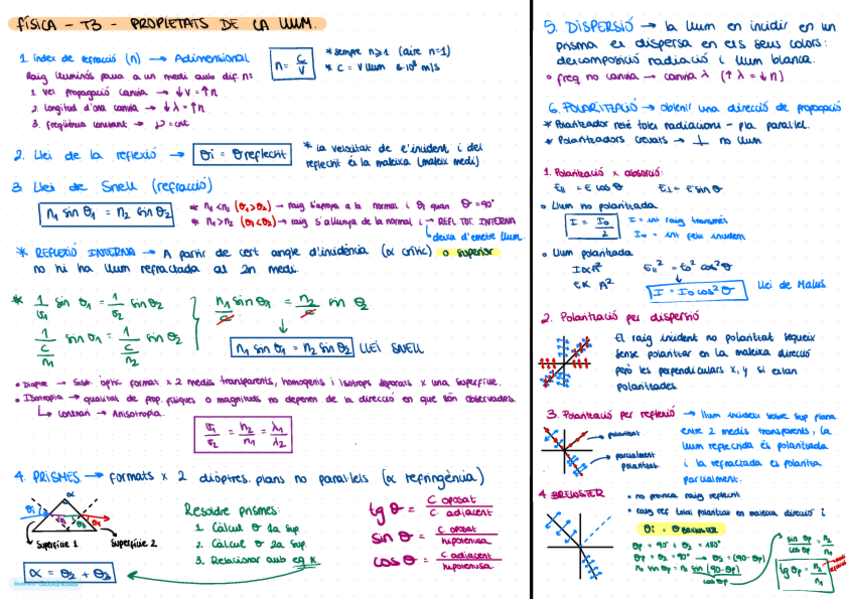 FÍSICA - T3 - PROPIETATS DE LA LLUM.
1. Índex de refracció (n) → Adimensional
n = c/v
* sempre n≥1 (aire n=1)
* c = v llum
Raig lluminós passa a un medi amb dif. n:
1. Vel propagació canvia → ↓v = ↑n
2. Longitud d'ona canvia → ↓λ = ↑n
3. Freqüència constant → ν = cnt
2. Llei de la reflexió → θi = θreflectit
* la velocitat de l'incident i del
reflectit és la mateixa (mateix medi)
3. Llei de Snell (refracció)
n1 sin θ1 = n2 sin θ2
* n1 < n2 (θ1>θ2) → raig s'apropa a la normal i θ1 quan θ=90°
* n1 > n2 (θ1<θ2) → raig s'allunya de la normal i → REFL TOT. INTERNA
deixa d'emetre llum.
* REFLEXIÓ INTERNA → A partir de cert angle d'incidència (α crític) o superior
no hi ha llum refractada al 2n medi.
* 1/v1 sin θ1 = 1/v2 sin θ2
n1 sin θ1/c = n2/c sin θ2
1/(c/n1) sin θ1 = 1/(c/n2) sin θ2
n1 sin θ1 = n2 sin θ2 LLEI SNELL
• Dioptre → Sist. òptic format x 2 medis transparents, homogenis i isòtrops separats x una superfície.
• Isotropia → qualitat de prop. físiques o magnituds no depenen de la direcció en que són observades.
↳ contrari → Anisotropia.
v1/v2 = n2/n1 = λ1/λ2
4. PRISMES → formats x 2 dioptres plans no paral·lels (α refringència)
α
θ1
θ2
θ3
Superfície 1
Superfície 2
α = θ2 + θ3
Resoldre prismes:
1. Càlcul θ 1a sup
2. Càlcul θ 2a sup
3. Relacionar amb eq
tg θ = C. oposat/C. adjacent
sin θ = C. oposat/hipotenusa
cos θ = C. adjacent/hipotenusa
5. DISPERSIÓ → la llum en incidir en un
prisma es dispersa en els seus colors:
descomposició radiació i llum blanca.
• freq no canvia → canvia λ (↑λ = ↓n)
6. POLARITZACIÓ → obtenir una direcció de propagació
* Polaritzador reté totes radiacions - pla paral·lel.
* Polaritzadors creuats → ⊥ no llum
1. Polarització x absorció:
E|| = E cos θ E⊥ = E sin θ
• Llum no polaritzada
I = I0/2
I = int raig transmès
I0 = int feix incident
• Llum polaritzada
I∝A²
E||² = E0² cos²θ
E∝ A²
I = I0 cos²θ Llei de Malus
2. Polarització per dispersió
El raig incident no polaritzat segueix
sense polaritzar en la mateixa direcció
però les perpendiculars x, y sí estan
polaritzades
3. Polarització per reflexió → llum incideix sobre sup plana
entre 2 medis transparents, la
llum reflectida és polaritzada
i la refractada es polaritza
parcialment.
polaritzat
parcialment
polaritzat
4. BREWSTER
• no provoca raig reflectit
• raig ref total polaritzat en mateixa direcció i
θi = θ BREWSTER
θp + 90° + θ2 = 180°
θp + θ2 = 90° → θ2 = (90-θp)
n1 sin θp = n2 sin (90-θp)
cos θp
sin θp/cos θp = n2/n1
tg θp = n2/n1